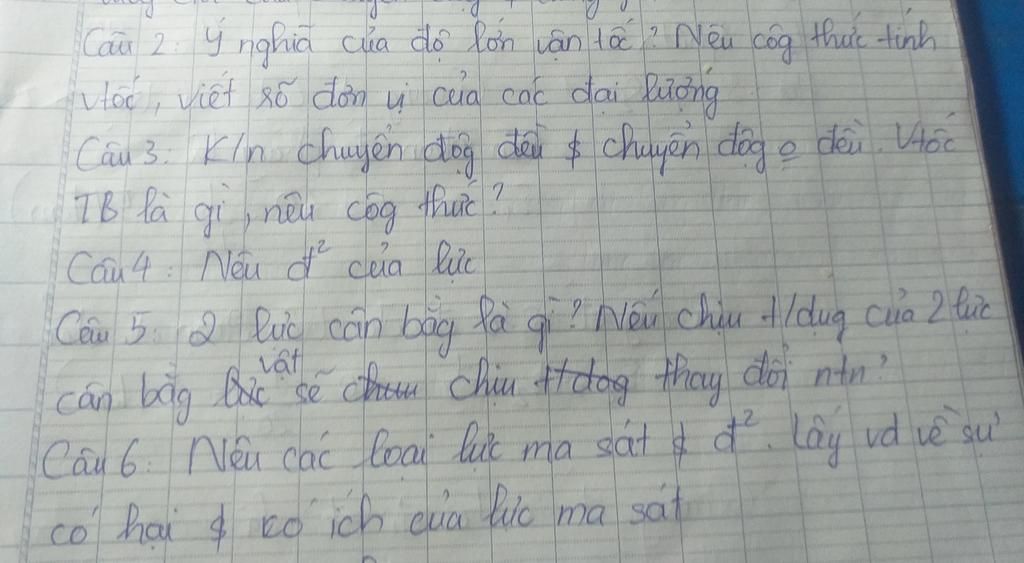 Câu 2: Ý nghĩa của độ lớn vận tốc? Nêu côg thức tính
vtốc, viết số đơn vị của các đại lượng
Câu 3: K/n chuyển độg đều & chuyển độg o đều. Vtốc
TB là gì, nêu côg thức?
Câu 4: Nêu đ² của lực
Câu 5: 2 lực cân bằg là gì? Nếu chịu t/dụg của 2 lực
cân bằg vật sẽ chịu thay đổi ntn?
Câu 6: Nêu các loại lực ma sát & đ². Lấy vd về sự
có hại & có ích của lực ma sát